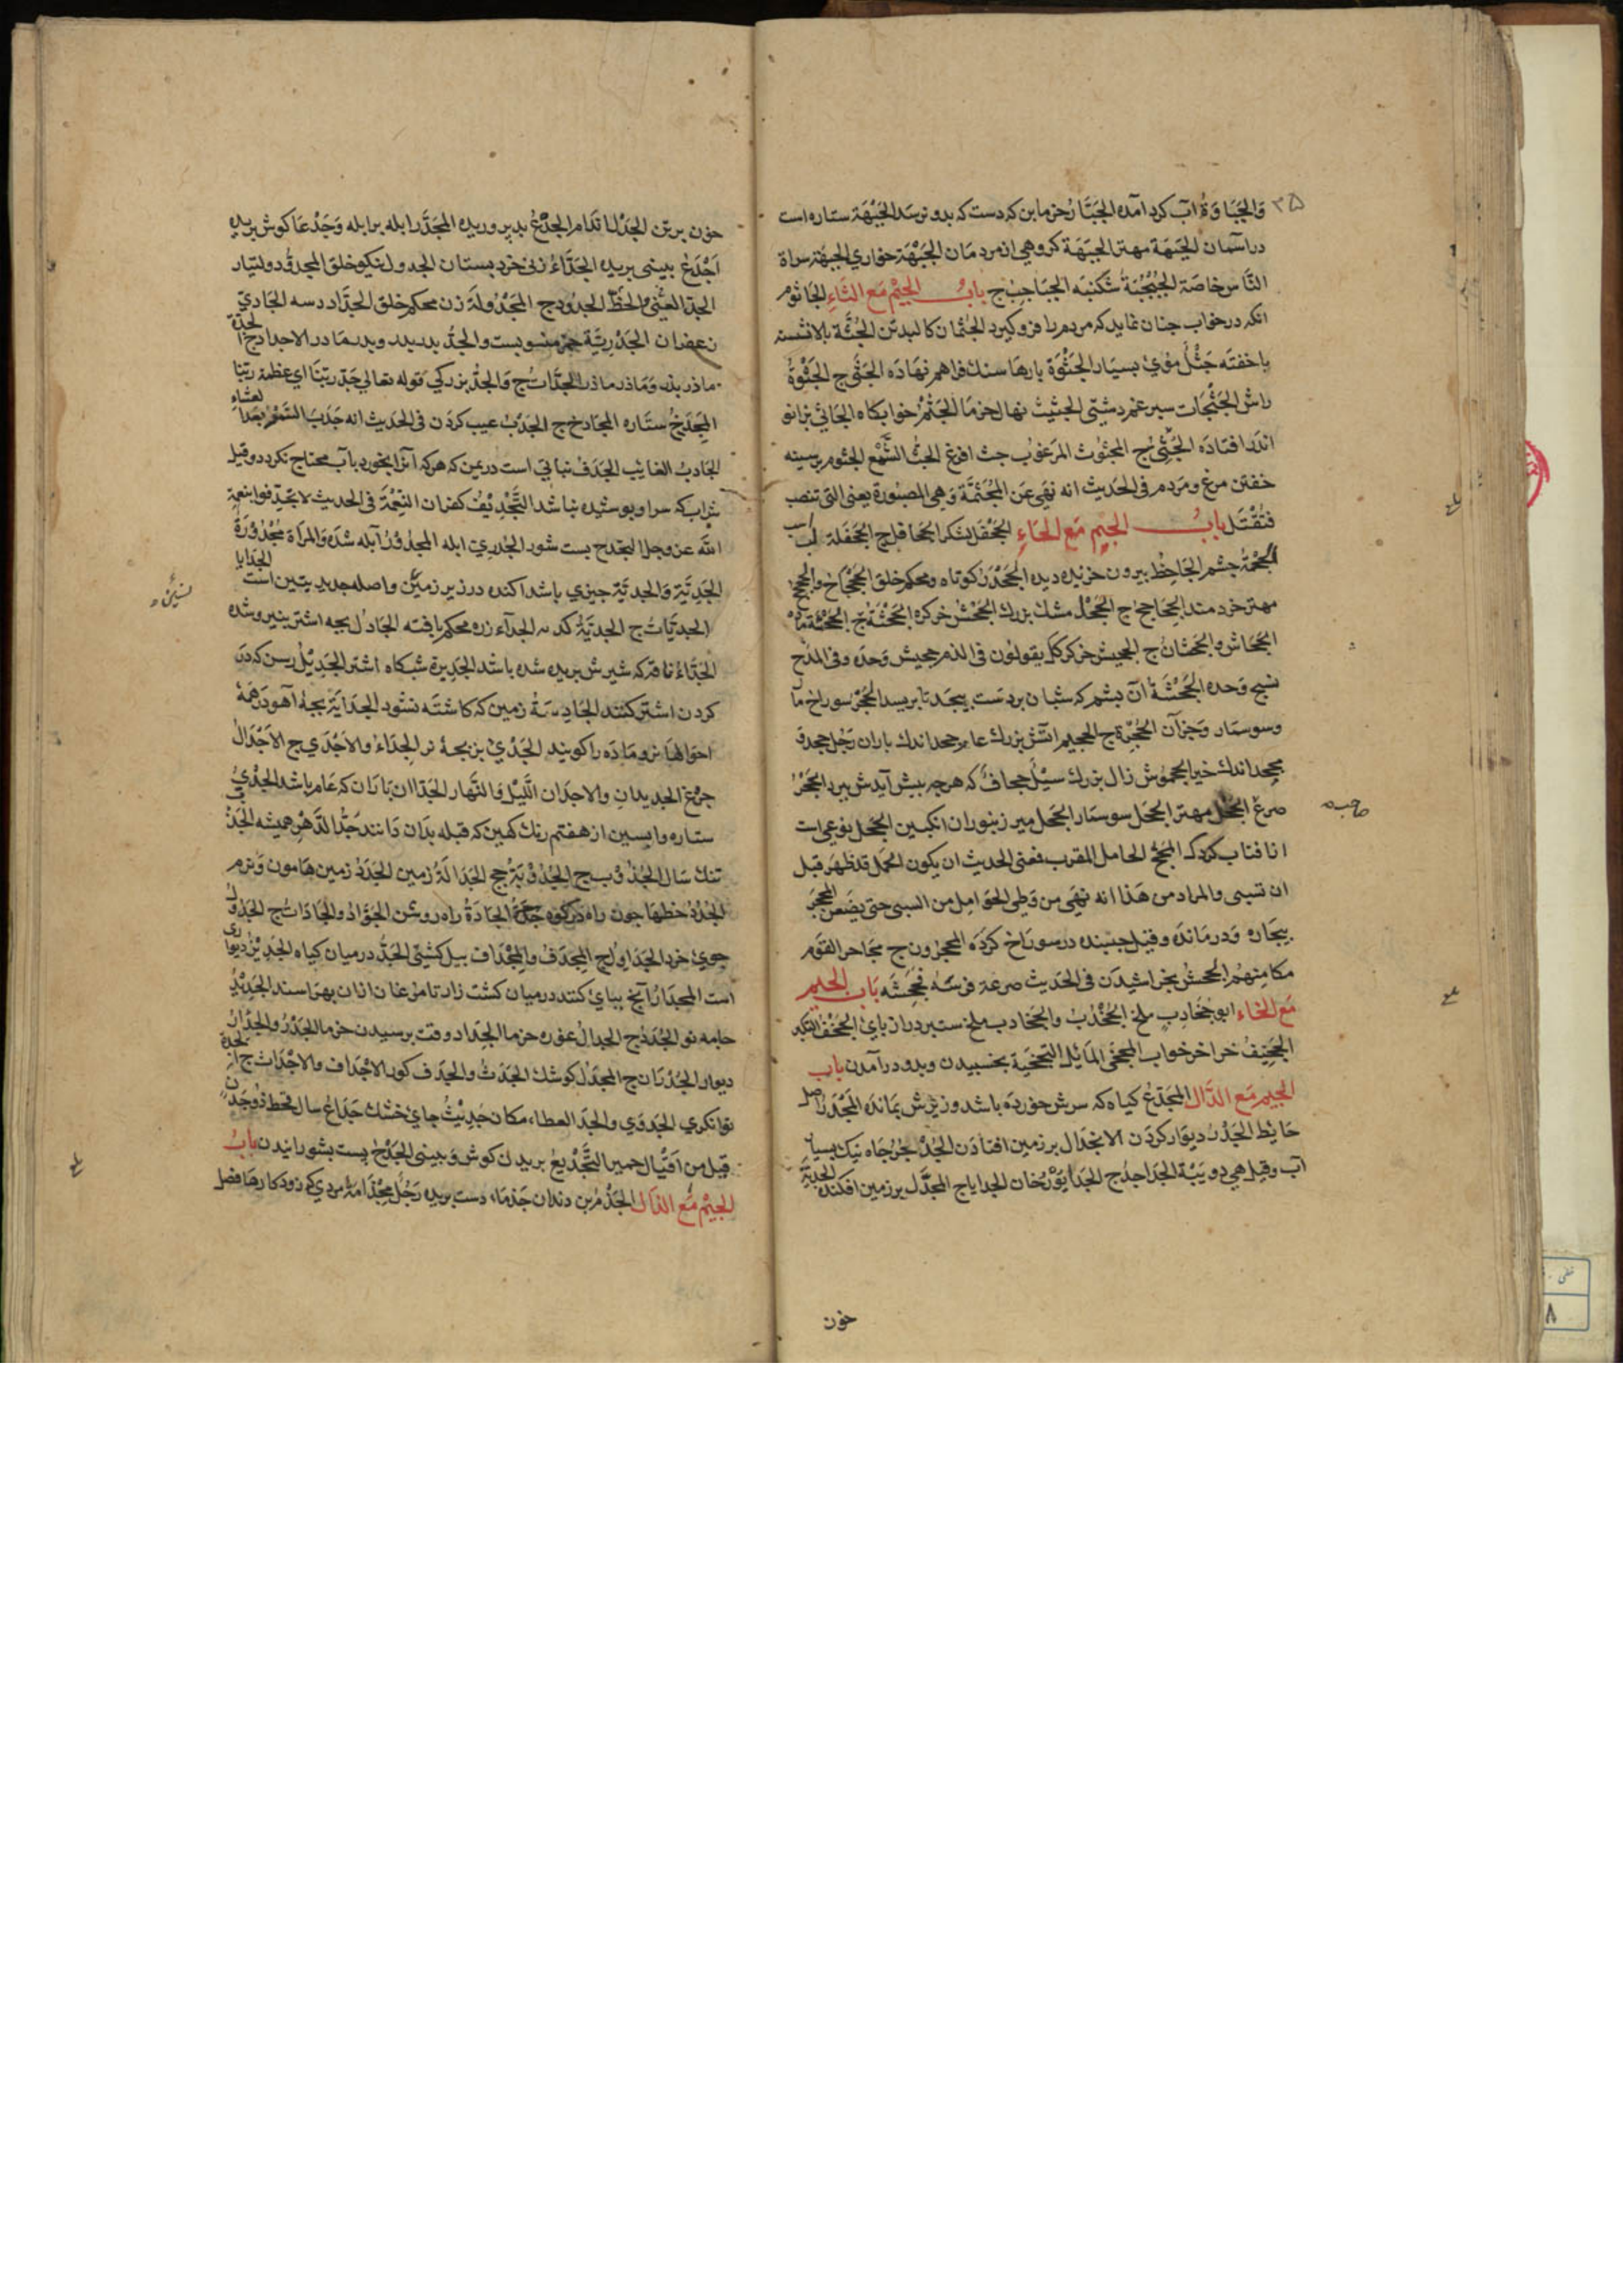 ۳۵
والجباوة آب کرد آمده الجبار خرما بن که دست که بدو نرسد الجبهة ستاره است
در آسمان الجبهة مهتر الجبهة کروهی از مردمان الجبهة خواری الجبهة سراة
الناس خاصة الجبجبة شکنبه الجباجب ج باب الجیم مع الثاء الجاثوم
انکه در خواب جنان نماید که مردم را فرو کیرد الجثمان کالبد تن الجثة بالا نشسته
یا خفته جثل موی بسیار الجثوة بارها سنک فراهم نهاده الجثی ج الجثوة
راش الجثجاث سبرغم دشتی الجثیث نهال خرما الجثم خوابکاه الجاثی بزانو
اندر افتاده الجثی ج المجثوث المرعوب جث افزع الجث الشمع الجثوم بر سینه
خفتن مرغ و مردم فی الحدیث انه نهی عن المجثمة وهی المصبورة یعنی التی تنصب
فتقتل باب الجیم مع الحاء الجحفل لشکر الجحافل ج الجحفلة لب اسب
الجحمة جشم الجاحظ بیرون خزیده دیده الجحدر کوتاه ومحکم خلق الجحجاح والجحجح
مهتر خردمند الجحاجح ج الجحل مشک بزرک الجحش خر کره الجحشة ج الجحشة ماده
الجحاش والجحشان ج الجحیش خر کرکک یقولون فی الذم جحیش وحده وفی المدح
نسیج وحده الجحشة آن بشم که شبان بر دست بیجد تا بریسد الجحر سوراخ مار
وسوسمار وجز آن الجحرة ج الجحیم اتش بزرک عام جحد اندک باران رجل جحد و
جحد اندک خیر الجحموش زال بزرک سیل جحاف که هر جه بیش آیدش ببرد الجحر
صرع الجحل مهتر الجحل سوسمار الجحل میر زنبوران انکبین الجحل نوعی است
از افتاب کردک المجح الحامل المقرب فعنی الحدیث ان یکون الحمل قد ظهر قبل
ان تسبی والمراد من هذا انه نهی من وطی الحوامل من السبی حتی یضعن المجحر
بیجاره ودرمانده وقیل جسبنده در سوراخ کرده المجحرون ج مجاحر القوم
مکامنهم الجحش بخراشیدن فی الحدیث صرع عن فرسه فجحشه باب الجیم
مع الخاء ابو جخادب ملخ الجخدب والجخادب ملخ ستبر دراز بای الجخف التکبر
الجخیف خراخر خواب المجخی المائل التجخیة بخسبیدن وبدو در آمدن باب
الجیم مع الدال المجدع کیاه که سرش خورده باشد وزیرش بمانده الجدر اصل
حایط الجدر دیوار کردن الانجدال بر زمین افتادن الجدجد جاه نیک بسیار
آب وقیل هی دویبة الجداجد ج الجدایة زخان الجدایا ج المجدل بر زمین افکنده الجدیة
خون
خون بر تن الجدل اندام الجدع بد بروریده المجدر ابله بر ابله وجدعا کوش بریده
اجدع بینی بریده الجداء زنی خرد بستان المجدول نیکو خلق المجدود دولتیار
الجد الغنی والحظ الجدود ج المجدولة زن محکم خلق الجداد رسه الجادی
زعفران الجدریة جز منسوبست والجد بدر بدر وبدر مادر الاجداد ج الجدة
ماذر بذر وماذر ماذر الجدات ج والجد بزرکی قوله تعالی جد ربنا ای عظمة ربنا
المجدح ستاره المجادح ج الجدب عیب کردن فی الحدیث انه جدب السمر بعد العشاء
الجادب العائب الجدف نباتی است در یمن که هر که آنرا بخورد بآب محتاج نکردد وقیل
شراب که سر او بوشیده نباشد التجدیف کفران النعمة فی الحدیث لا تجدفوا بنعمة
الله عز وجل التجدح بست شور الجدری ابله المجدور آبله شده والمرأة مجدورة
الجدیة والجدیة جیزی باشد اکنده در زیر زین واصله جدید یتین است الجدایا
الجدیات ج الجدیة کدیه الجدلاء زره محکم بافته الجادل بجه اشتر بنیرو شده
الجداء ناقه که شیرش بریده شده باشد الجدیرة شبکاه اشتر الجدیل رسن که در
کردن اشتر کنند الجادسة زمین که کاشته نشود الجدایة بجه آهو در همه
احوالها نر وماده را کویند الجدی بزبجه نر الجداء والاجدی ج الاجدل
جرغ الجدیدان والاجدان اللیل والنهار الجدا ان باران که عام باشد الجدی
ستاره وابسین از هفتم رنک کهین که قبله بدان دانند جد الدهر همیشه الجدب
تنک سال الجدوب ج الجدوبة جج الجدالة زمین الجدد زمین هامون ونرم
الجدد خطها جون راه در کوه جدة ج الجادة راه روشن الجواد والجادات ج الجدول
جوی خرد الجداول ج المجدف والمجداف بیل کشتی الجد در میان کیاه الجدیر دیواری
است المجدار آنج ببای کنند در میان کشت زار تا مرغان از ان بهراسند الجدید
جامه نو الجدد ج الجدال غوره خرما الجداد وقت برسیدن خرما الجدر والجدار
دیوار الجدران ج المجدل کوشک الجدث والجدف کور الاجداف والاجداث ج الجدة
توانکری الجدوی والجدا العطاء مکان جدیب جای خشک جداع سال قحط ذو جدن
قیل من اقیال حمیر التجدیع بریدن کوش وبینی الجدح بست بشورانیدن باب
الجیم مع الذال الجذم بن دندان جذماء دست بریده رجل مجذامة مردی که زود کارها فصل